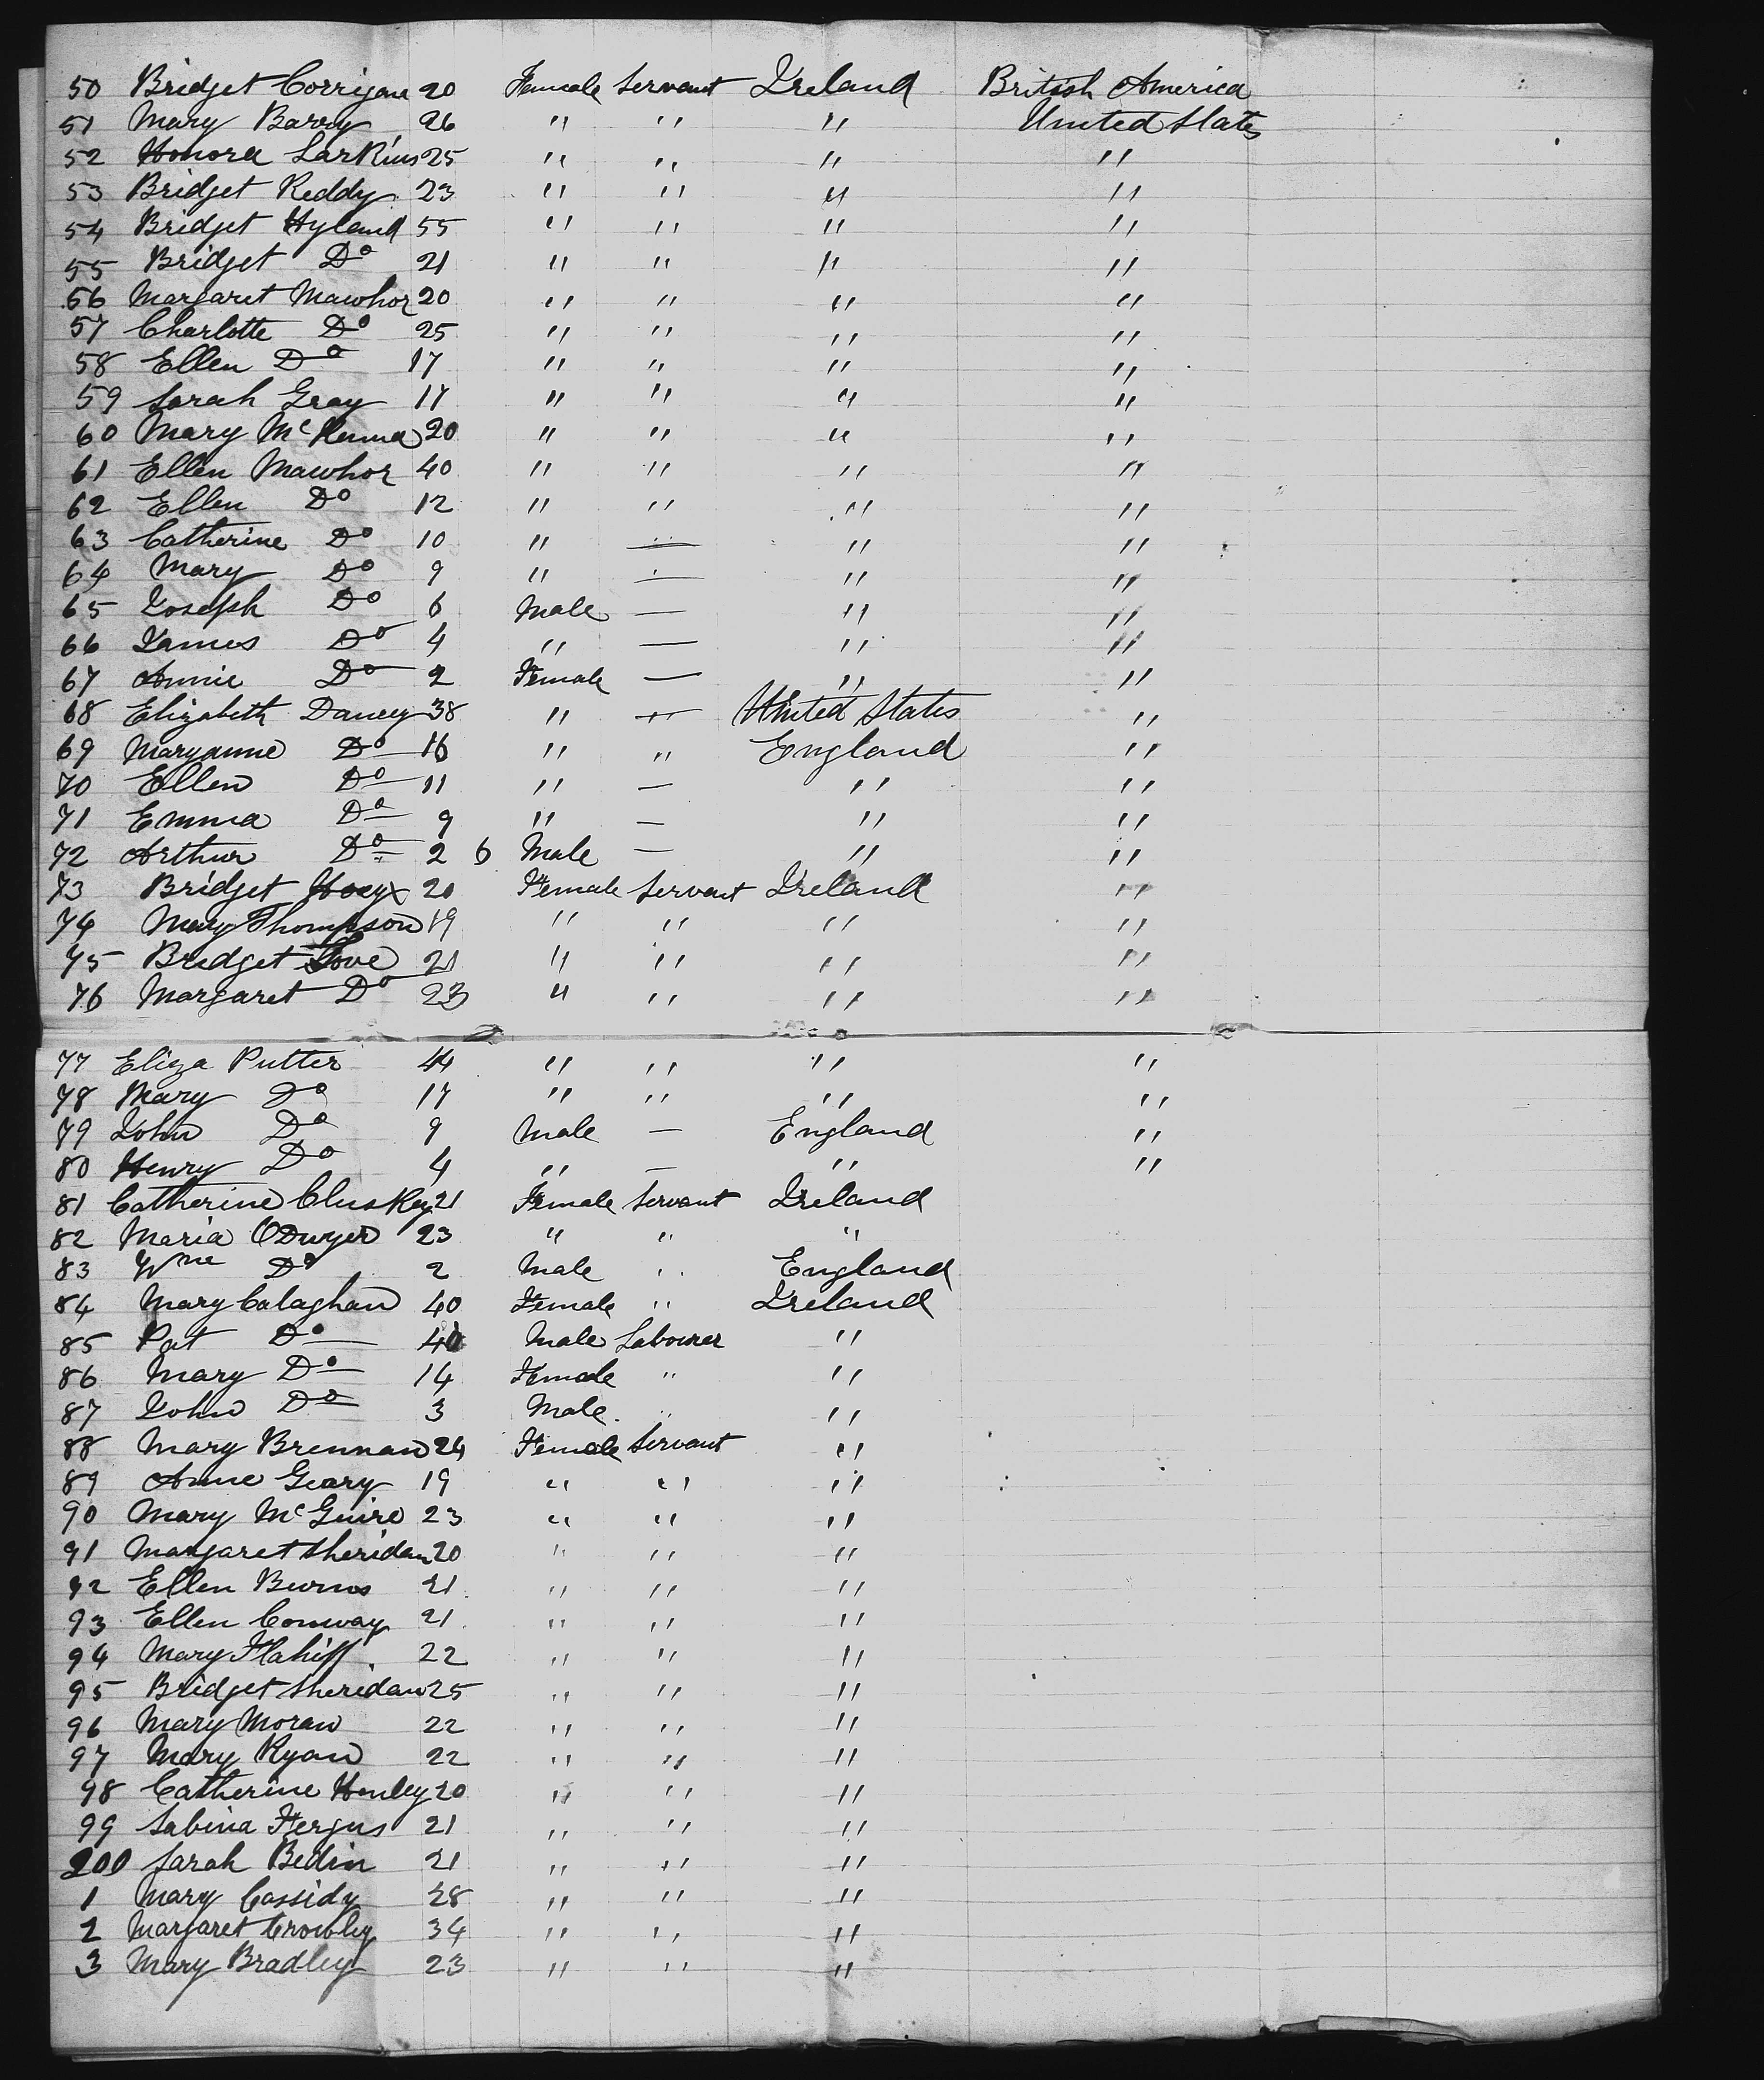 50 Bridget Corrigan 20 Female Servant Ireland British America
51 Mary Barry 26 " " " United States
52 Honora Larkins 25 " " " "
53 Bridget Reddy 23 " " " "
54 Bridget Hyland 55 " " " "
55 Bridget Do 21 " " " "
56 Margaret Mawhor 20 " " " "
57 Charlotte Do 25 " " " "
58 Ellen Do 17 " " " "
59 Sarah Gray 17 " " " "
60 Mary McKenna 20 " " " "
61 Ellen Mawhor 40 " " " "
62 Ellen Do 12 " " " "
63 Catherine Do 10 " — " "
64 Mary Do 9 " — " "
65 Joseph Do 6 Male — " "
66 James Do 4 " — " "
67 Annie Do 2 Female — " "
68 Elizabeth Daney 38 " " United States "
69 Maryanne Do 16 " " England "
70 Ellen Do 11 " — " "
71 Emma Do 9 " — " "
72 Arthur Do 2 6 Male — " "
73 Bridget Hoey 20 Female Servant Ireland "
74 Mary Thompson 19 " " " "
75 Bridget Love 21 " " " "
76 Margaret Do 23 " " " "
77 Eliza Putter 44 " " " "
78 Mary Do 17 " " " "
79 John Do 9 Male — England "
80 Henry Do 4 " — " "
81 Catherine Cluskey 21 Female Servant Ireland
82 Maria ODwyer 23 " " "
83 Wm Do 2 Male " England
84 Mary Calaghan 40 Female " Ireland
85 Pat Do 40 Male Labourer "
86 Mary Do 14 Female " "
87 John Do 3 Male " "
88 Mary Brennan 24 Female Servant "
89 Anne Geary 19 " " "
90 Mary McGuire 23 " " "
91 Margaret Sheridan 20 " " "
92 Ellen Burns 21 " " "
93 Ellen Conway 21 " " "
94 Mary Flahiff 22 " " "
95 Bridget Sheridan 25 " " "
96 Mary Moran 22 " " "
97 Mary Ryan 22 " " "
98 Catherine Henley 20 " " "
99 Sabina Fergus 21 " " "
200 Sarah Bedin 21 " " "
1 Mary Cassidy 28 " " "
2 Margaret Crowley 34 " " "
3 Mary Bradley 23 " " "